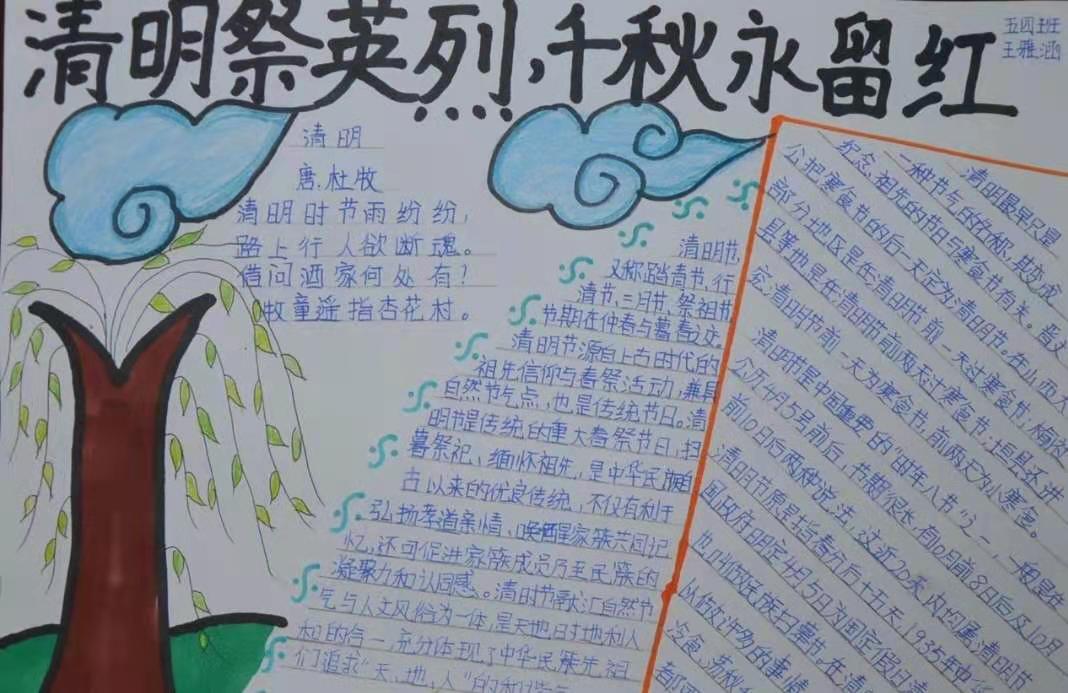 清明祭英烈,千秋永留红
五四班
王雅涵
清明
唐.杜牧
清明时节雨纷纷,
路上行人欲断魂。
借问酒家何处有?
牧童遥指杏花村。
清明节,
又称踏青节,行
清节、三月节、祭祖节
节期在仲春与暮春之交。
清明节源自上古时代的
祖先信仰与春祭活动,兼具
自然节气点,也是传统节日。清
明节是传统的重大春祭节日,扫
暮祭祀、缅怀祖先,是中华民族自
古以来的优良传统,不仅有利于
弘扬孝道亲情、唤醒家族共同记
忆,还可促进家族成员乃至民族的
凝聚力和认同感。清明节融汇自然节
气与人文风俗为一体,是天地日时地利人
和的合一,充分体现了中华民族先祖
们追求"天、地、人"的和谐
清明最早只是
一种节气的名称,其变成
纪念祖先的节日与寒食节有关。晋文
公把寒食节的后一天定为清明节。在山西大
部分地区是在清明节前一天过寒食节;榆社
县等地是在清明节前两天过寒食节;垣县还讲
究清明节前一天为寒食节,前两天为小寒食。
清明节是中国重要的"时年八节"之一,一般是在
公历4月5号前后,节期很长,有10日前8日后及10日
前10日后两种说法,这近20天内均属清明节
清明节原是指春分后十五天,1935年中华
国政府明定4月5日为国定假日清
也叫做民族扫墓节。在清
从做许多的事情
冷食、荡秋千